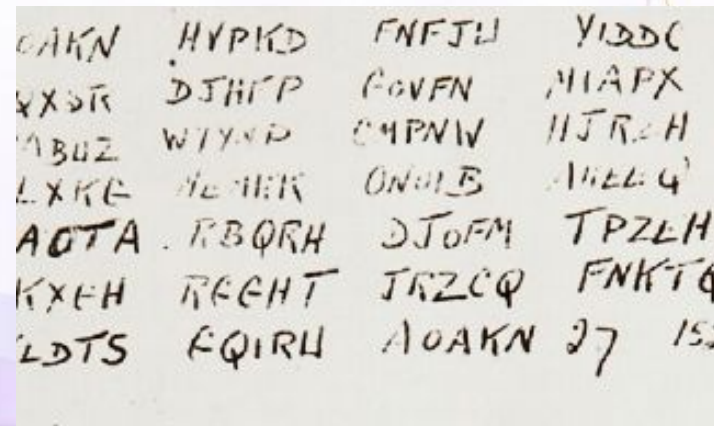 OAKN HVPKD FNFJW YIDDC
QXSR DJHFP GOVFN MIAPX
ABUZ WYYNP CMPNW HJRZH
LXKG ONOIB
AOTA RBQRH DJOFM TPZEH
KXGH RGGHT JRZCQ FNKTQ
LDTS GQIRW AOAKN 27 152